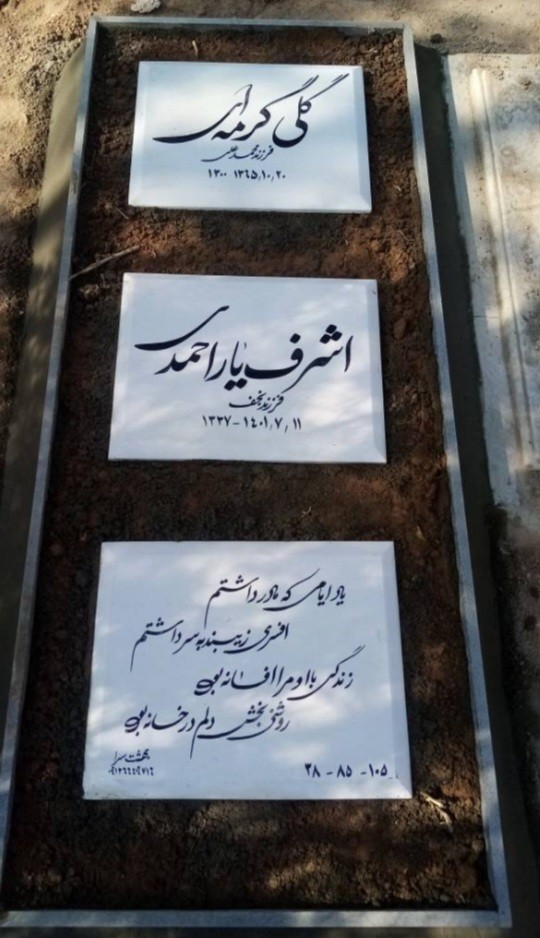 گلی کرمه ای
فرزند محمد علی
۱۳۰۰ ۱۳۶۵/۱۰/۲۰
اشرف یاراحمدی
فرزند نجف
۱۳۳۷-۱۴۰۱/۷/۱۱
یاد ایامی که مادر داشتم
افسری زیبنده به سر داشتم
زندگی با او مرا افسانه بود
روشنی بخش دلم در خانه بود
۳۸ - ۸۵ - ۱۰۵
بهشت سرا